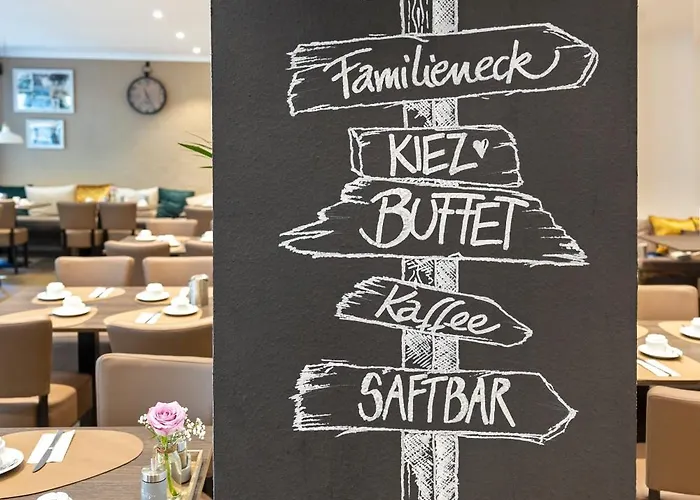 Familieneck
KIEZ
BUFFET
Kaffee
SAFTBAR